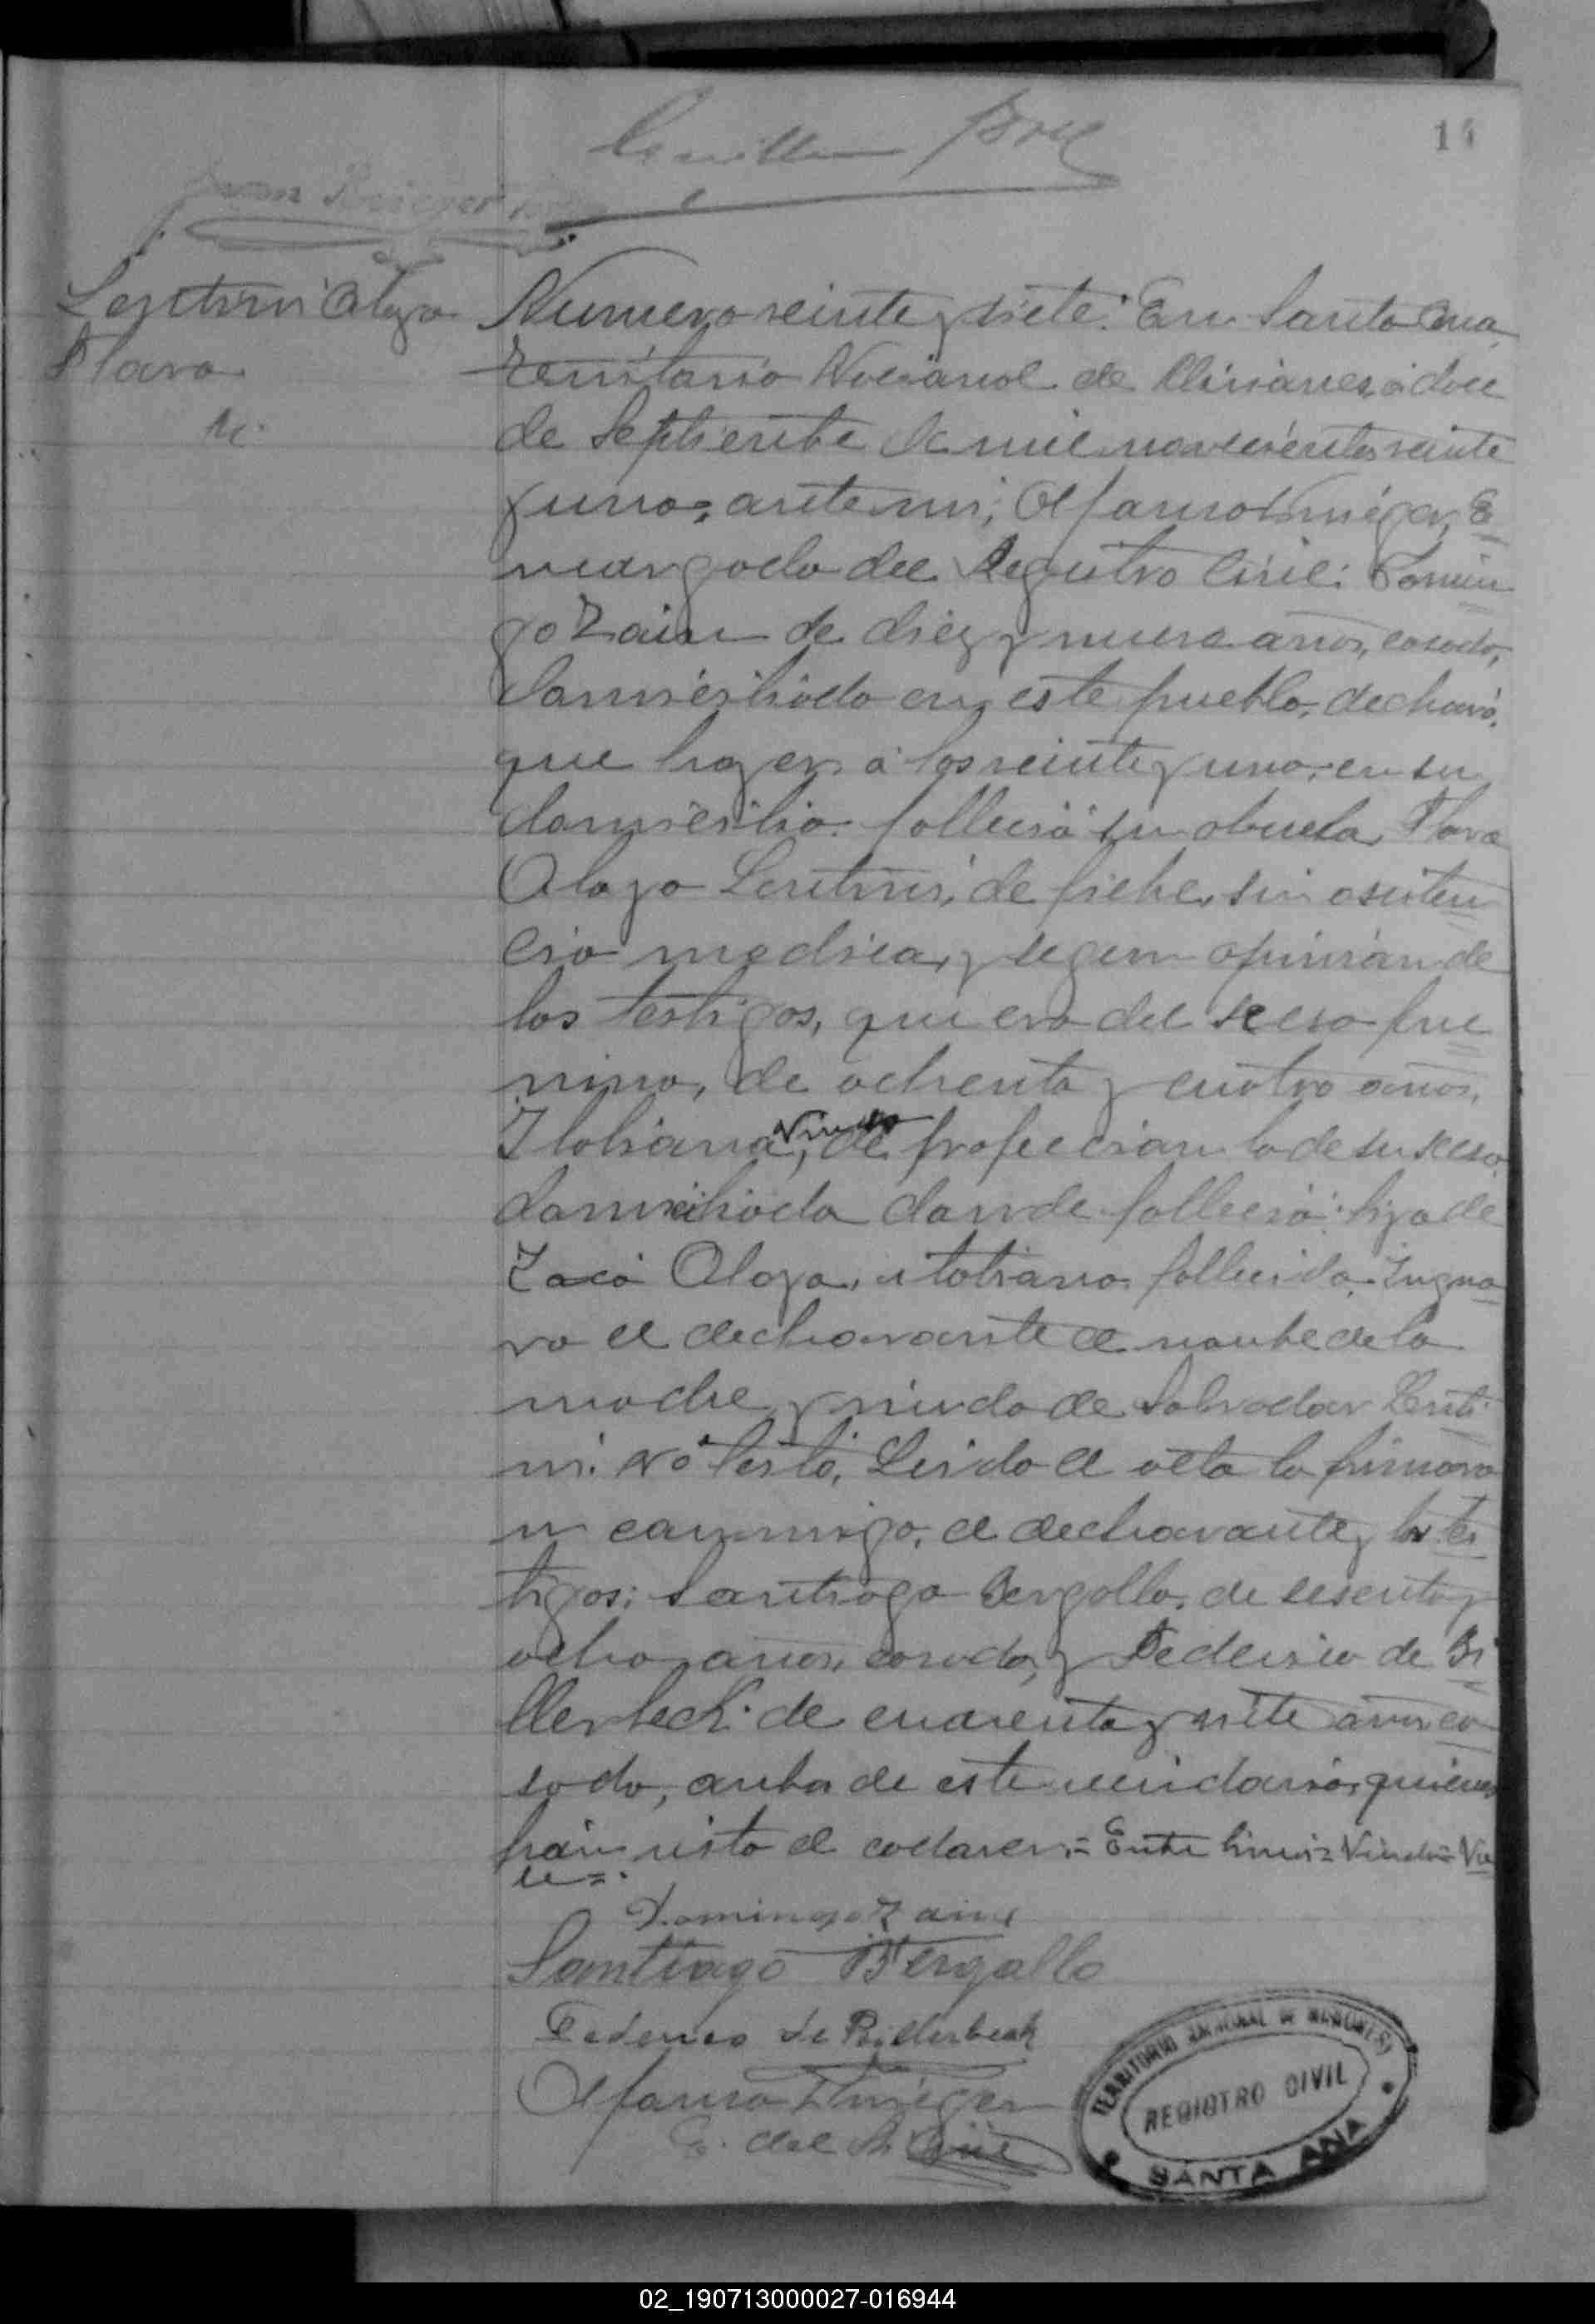 14
Lentini Alaza
Flava
Numero veinte y siete: En Santa Ana
Territorio Nacional de Misiones, á doce
de Septiembe de mil novecientos veinte
y uno, ante mi, Encargado
ncargado del Registro Civil: Domin
go Zaine de diez y nueve años, casado,
domiciliado en este pueblo, declaró:
que hayer á las veinte y una, en su
domicilio falleció su abuela, Flava
Lentini, de fiebe, sin asisten
cia medica, y segun opinión de
los testigos, que era del sexo fue
nino, de ochenta y cuatro años,
Itoliana, Viuda de profeccion la de su sexo,
domiciliada donde falleció: hija de
italiano fallecido. Ingno
ra el declarante el nombe de la
madre, y viuda de Salvador Lenti
ni. No testó. Leida el acta la firmaro
n conmigo, el declarante y los tes
tigos: Santiago Bergallo, de sesenta y
ocho años, casado, y Federico de Bi
llerbeck de cuarenta y siete años ca
sado, anbos de este vecindario, quienes
han visto el cadaver.= Ente linias= Viuda= Va
le=.
Domingo Zaine
Santiago Bergallo
Federico de Billerbeck
E. del R. Civil
TERRITORIO NACIONAL DE MISIONES
REGISTRO CIVIL
SANTA ANA
02_190713000027-016944